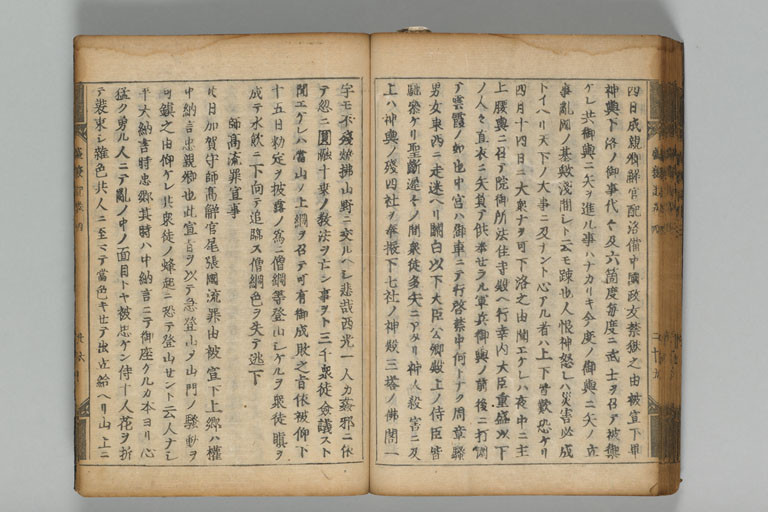 四日成親卿解官配洛備中國政友禁獄之由被宣下畢
神輿下洛ノ御事代々及六箇度毎度ニ武士ヲ召テ被禦
ケレ共御輿ニ矢ヲ進ル事ハナカリキ今度ノ御輿ニ矢ノ立
事亂國ノ基歟淺間シト云モ疎也人恨神怒レハ災害必成
トイヘリ天下ノ大事ニ及ナント心アル者ハ上下皆歎恐ケリ
四月十四日ニ大衆ナヲ可下洛之由聞エケレハ夜中ニ主
上腰輿ニ召テ院御所法住寺殿ヘ行幸内大臣重盛以下
ノ人々直衣ニ矢負テ供奉セラル軍兵御輿ノ前後ニ打圍
テ雲霞ノ如也中宮ハ御車ニテ行啓禁中何トナク周章騒
男女東西ニ走迷ヘリ關白以下大臣公卿殿上ノ侍臣皆
馳參ケリ聖斷遲々ノ間衆徒多矢ニアタリ神人殺害ニ及
上ハ神輿ノ殘四社ヲ奉振下七社ノ神殿三塔ノ佛閣一
字モ不殘燒拂山野ニ交ルヘシ悲哉西光一人カ姦邪ニ依
テ忽ニ圓融十乗ノ教法ヲ亡ン事ヲト三千衆徒僉議スト
聞エケレハ當山ノ上綱ヲ召テ可有御成敗之旨依被仰下
十五日勅定ヲ披露ノ爲ニ僧綱等登山シケルヲ衆徒嗔ヲ
成テ水飲ニ下向テ追歸ス僧綱色ヲ失テ逃下
師高流罪宣事
廿日加賀守師高解官尾張國流罪由被宣下上卿ハ權
中納言忠親卿也此宣旨ヲ以テ急登山メ山門ノ騒動ヲ
可鎮之由仰ケレ共衆徒ノ蜂起ニ恐テ登山セント云人ナシ
平大納言時忠卿其時ハ中納言ニテ御座ケルカ本ヨリ心
猛ク勇ル人ニテ亂ノ中ノ面目トヤ被思ケン侍十人花ヲ折
テ裝束シ雜色共人ニ至マテ當色キセテ出立給ヘリ山上ニ